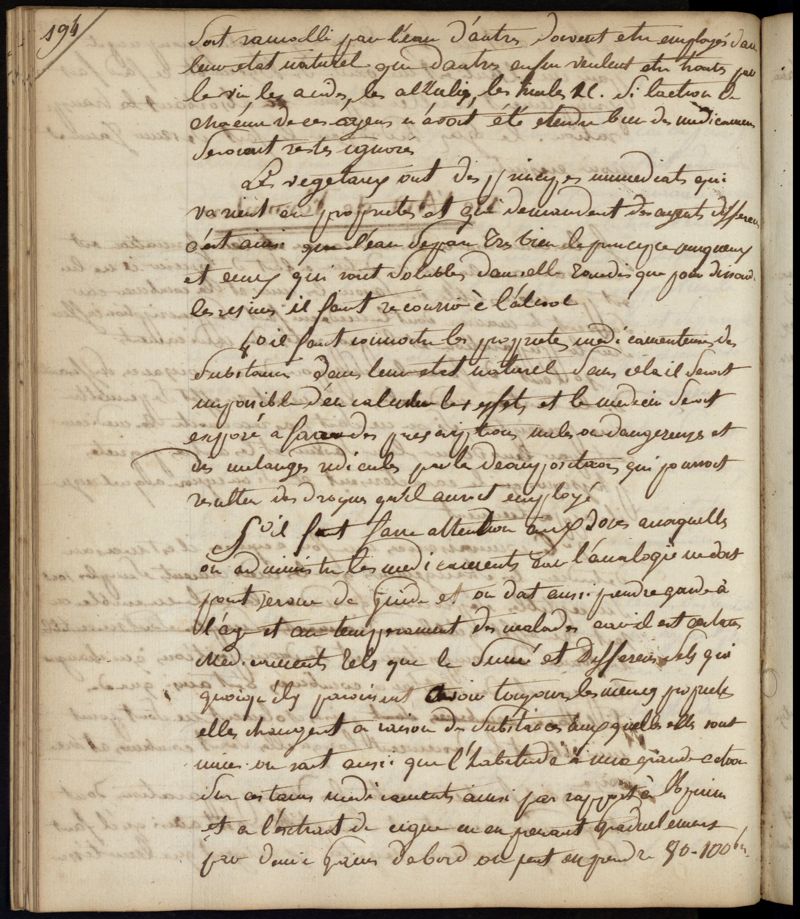 194
soit ramolli par l'eau d'autres doivent etre employés dans
leur etat naturel que d'autres enfin veulent etre traités par
le vin les acides, les alkalis, les huiles &c. Si l'action de
chacun de ces agens n'avoit été etendue bien des medicamens
seroient restés ignorés
Les vegetaux ont des principes immediats qui
varient en proprietés et qui demandent des agents differens
c'est ainsi que l'eau separe tres bien le principe muqueux
et ceux qui sont solubles dans elle tandis que pour dissoudre
les resines il faut recourir à l'alcool
il faut connoitre les proprietes medicamenteuses des
substances dans leur etat naturel sans cela il seroit
impossible d'en calculer les effets et le medecin seroit
exposé a faire des prescriptions nules ou dangereuses et
des melanges ridicules par la decomposition qui pourroit
resulter des drogues qu'il auroit employé
il faut faire attention aux doses auxquelles
on administre les medicaments car l'analogie ne doit
point servir de guide et on doit aussi prendre garde à
l'age et au temperament des malades car il est certains
medicaments tels que le et differens sels qui
quoiqu'ils paroissent avoir toujours les mêmes proprietés
elles changent a raison des substances auxquelles elles sont
unies on sait aussi que l'habitude à une grande action
sur certains medicaments ainsi par rapport à l'opium
et a l'extrait de cigue en en prenant graduelement
par demi grains d'abord on peut en prendre 80-100